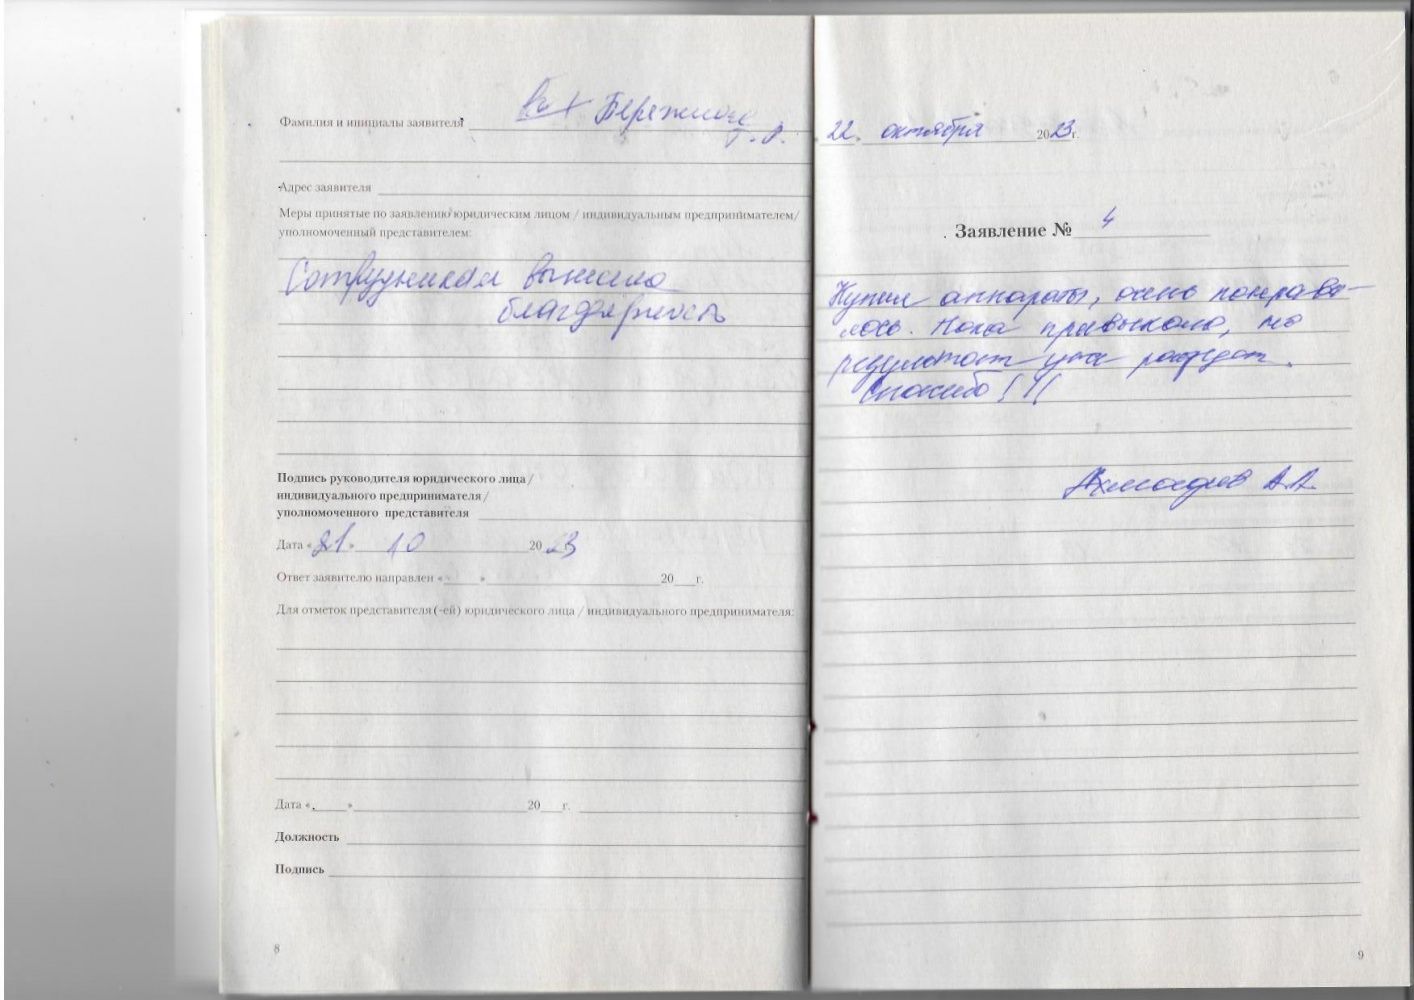 Фамилия и инициалы заявителя Бережного
Адрес заявителя
Меры принятые по заявлению юридическим лицом / индивидуальным предпринимателем/
уполномоченный представителем:
Сотрудникам вынесла
благодарность
Подпись руководителя юридического лица /
индивидуального предпринимателя /
уполномоченного представителя
Дата «21» 10 2023
Ответ заявителю направлен « » 20 г.
Для отметок представителя (-ей) юридического лица / индивидуального предпринимателя:
Дата « » 20 г.
Должность
Подпись
8
22. октября 2023 г.
Заявление № 4
Купил аппараты, очень понрави-
лось. Пока привыкаю, но
результат уже радует.
Спасибо!!!
Ахмадиев А.А.
9